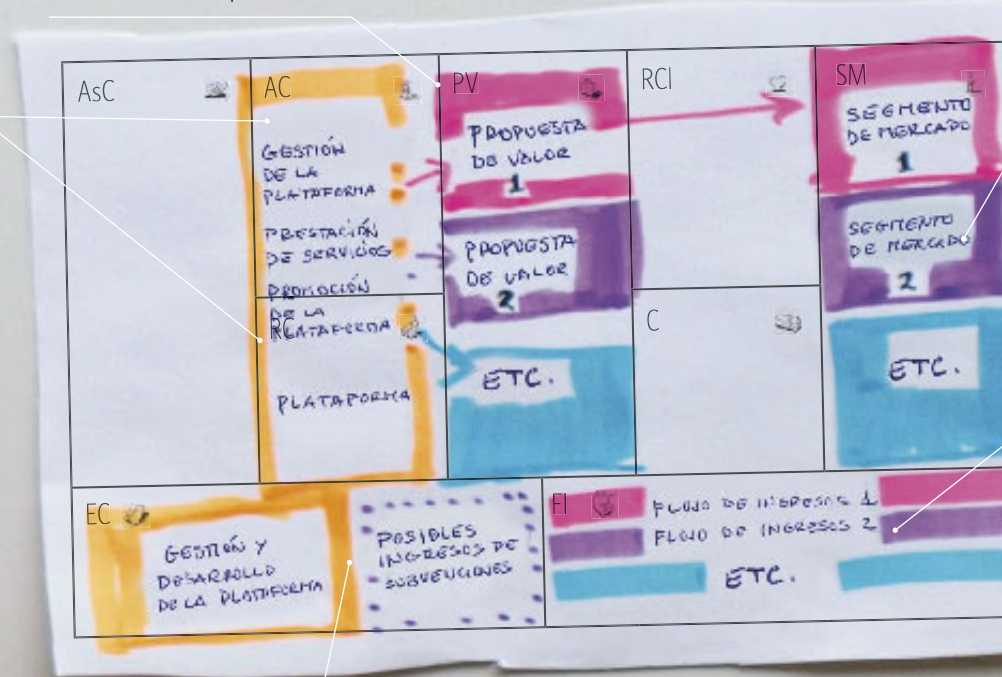 AsC
AC
GESTIÓN
DE LA
PLATAFORMA
PRESTACIÓN
DE SERVICIOS
PROMOCIÓN
DE LA
PLATAFORMA
RC
PLATAFORMA
PV
PROPUESTA
DE VALOR
1
PROPUESTA
DE VALOR
2
ETC.
RCl
C
SM
SEGMENTO
DE MERCADO
1
SEGMENTO
DE MERCADO
2
ETC.
EC
GESTIÓN Y
DESARROLLO
DE LA PLATAFORMA
POSIBLES
INGRESOS DE
SUBVENCIONES
FI
FLUJO DE INGRESOS 1
FLUJO DE INGRESOS 2
ETC.